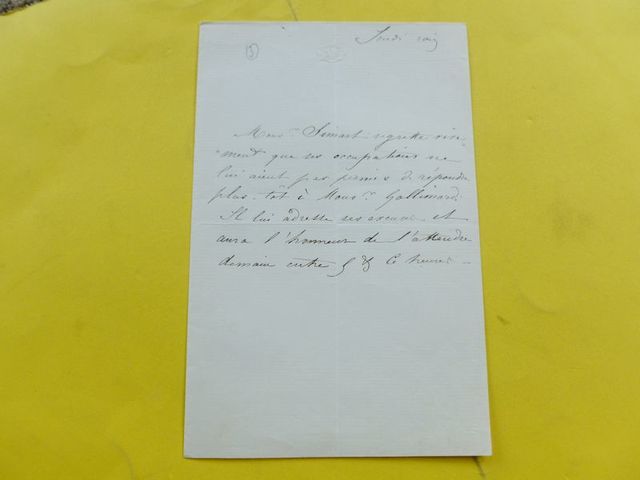 (5)
Jeudi soir
Mons.r Simart regrette vive-
"ment que ses occupations ne
lui aient pas permis de répondre
plus tôt à Mons.r Gallimard.
Il lui adresse ses excuses et
aura l'honneur de l'attendre
demain entre 5 & 6 heures.